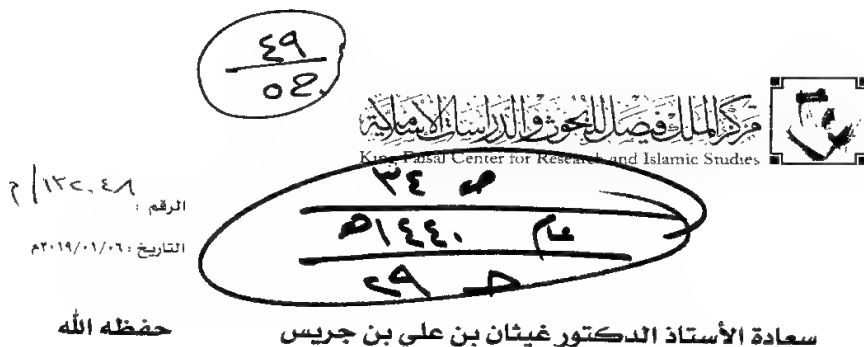 ٤٩
ح٥
مركز الملك فيصل للبحوث والدراسات الإسلامية
King Faisal Center for Research and Islamic Studies
ص ٣٤
الرقم : ١٣٢٠٤٨/م
عام ١٤٤٠هـ
التاريخ : ٢٠١٩/٠١/٠٦م
ح ٢٩
سعادة الأستاذ الدكتور غيثان بن علي بن جريس حفظه الله